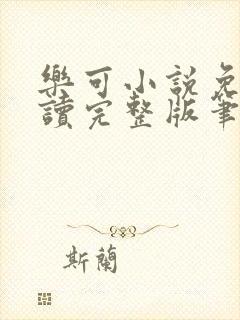 樂可小說免
讀完整版筆
斯蘭